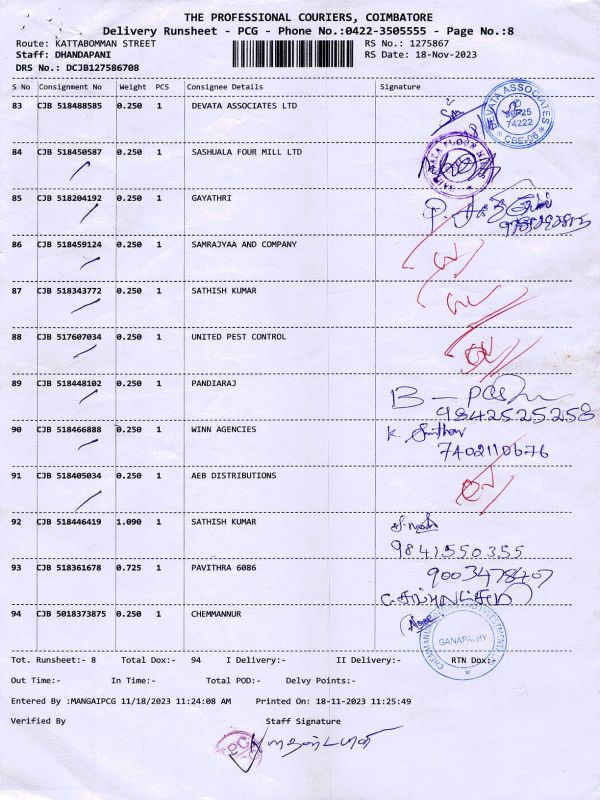 THE PROFESSIONAL COURIERS, COIMBATORE
Delivery Runsheet - PCG - Phone No.:0422-3505555 - Page No.:8
Route: KATTABOMMAN STREET RS No.: 1275867
Staff: DHANDAPANI RS Date: 18-Nov-2023
DRS No.: DCJB127586708
S No Consignment No Weight PCS Consignee Details Signature
83 CJB 518488585 0.250 1 DEVATA ASSOCIATES LTD
DEVATA ASSOCIATES
74222
CBE-06
84 CJB 518450587 0.250 1 SASHUALA FOUR MILL LTD
85 CJB 518204192 0.250 1 GAYATHRI
86 CJB 518459124 0.250 1 SAMRAJYAA AND COMPANY
87 CJB 518343772 0.250 1 SATHISH KUMAR
88 CJB 517607034 0.250 1 UNITED PEST CONTROL
89 CJB 518448102 0.250 1 PANDIARAJ
9842525258
90 CJB 518466888 0.250 1 WINN AGENCIES
7402110676
91 CJB 518405034 0.250 1 AEB DISTRIBUTIONS
92 CJB 518446419 1.090 1 SATHISH KUMAR
9841550355
93 CJB 518361678 0.725 1 PAVITHRA 6086
94 CJB 5018373875 0.250 1 CHEMMANNUR
GANAPATHY
Tot. Runsheet:- 8 Total Dox:- 94 I Delivery:- II Delivery:- RTN Dox:-
Out Time:- In Time:- Total POD:- Delvy Points:-
Entered By :MANGAIPCG 11/18/2023 11:24:08 AM Printed On: 18-11-2023 11:25:49
Verified By Staff Signature
PCG